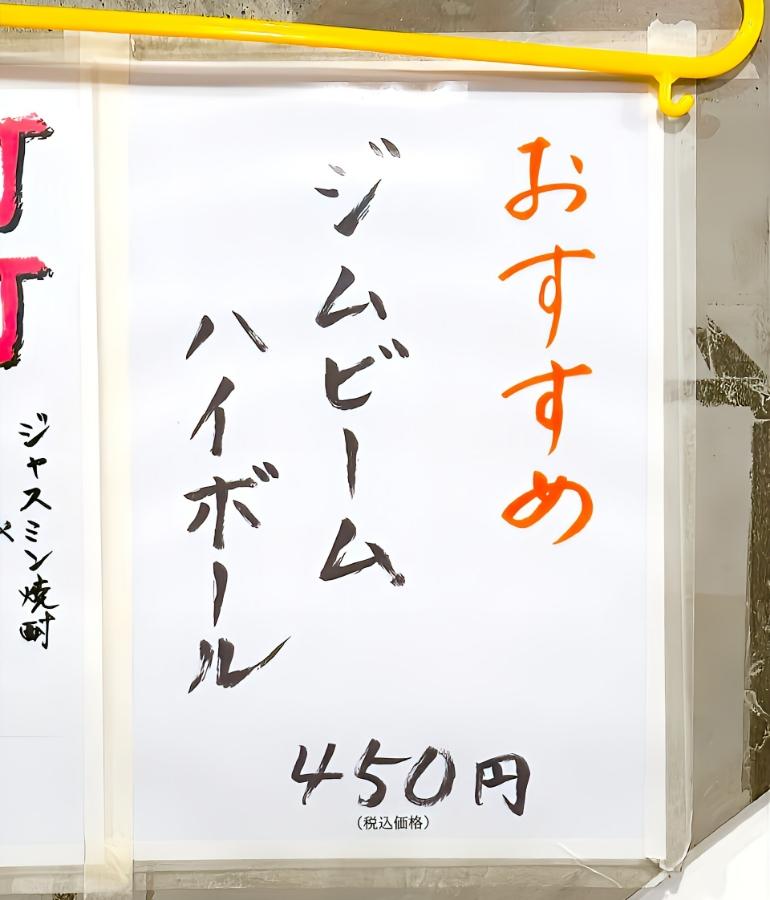 おすすめ
ジムビーム
ハイボール
450円
(税込価格)
ジャスミン焼酎